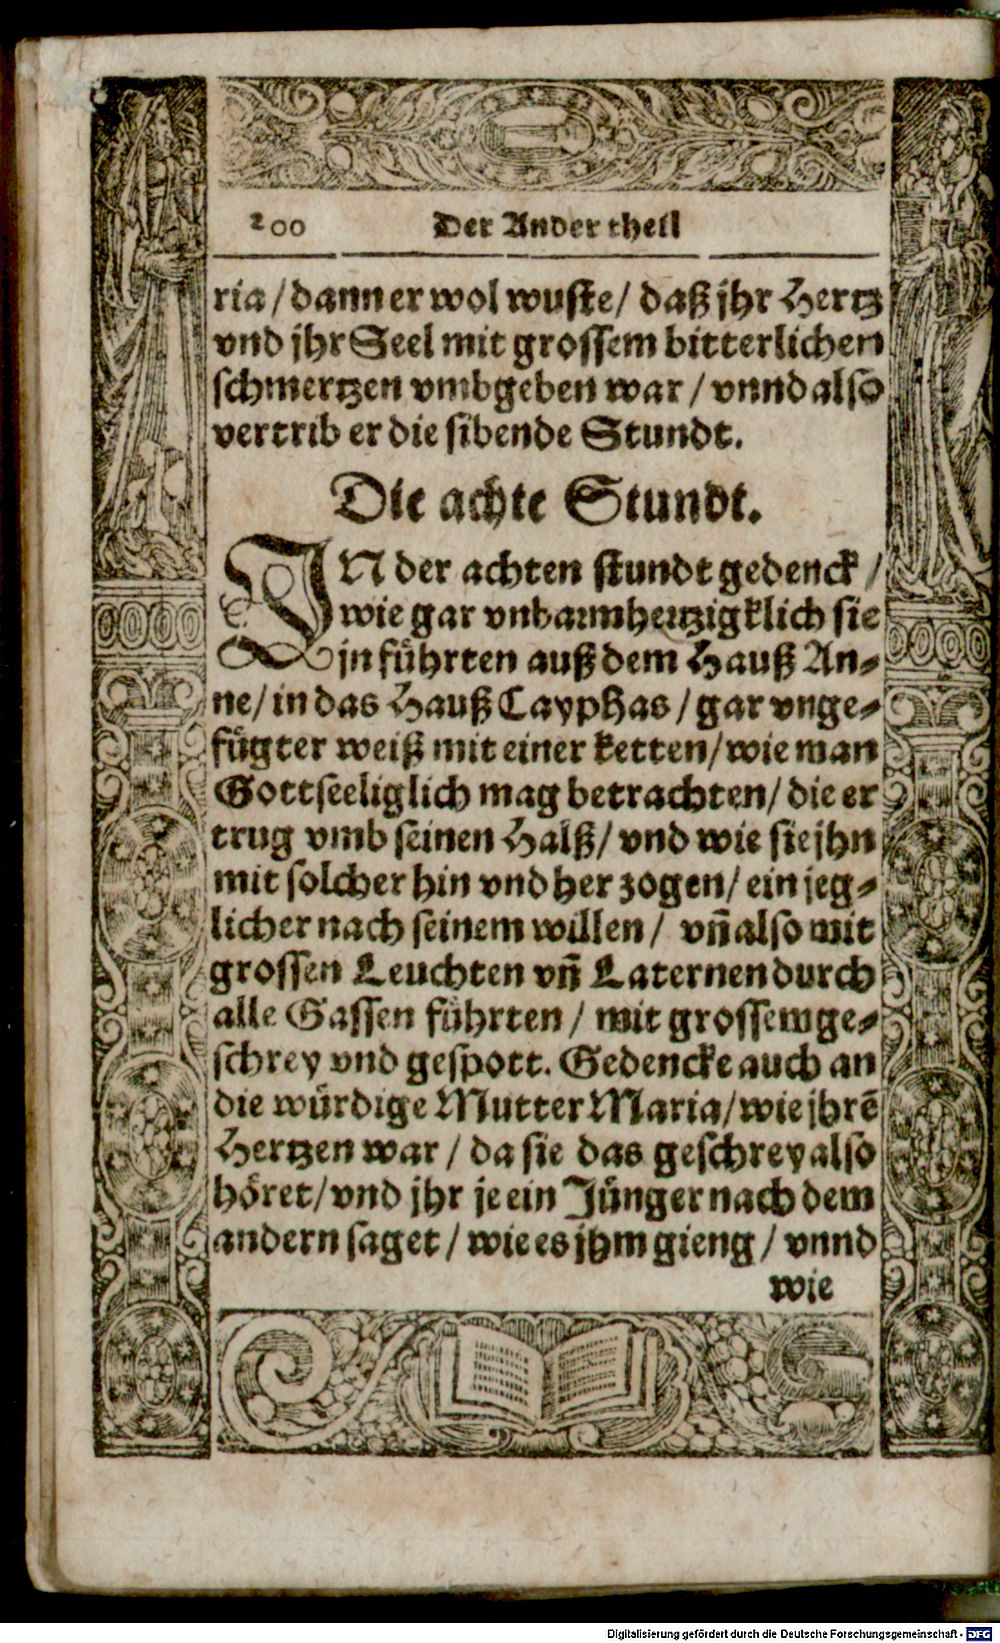 200 Der Ander theil
ria / dann er wol wuste / daß jhr Hertz
vnd jhr Seel mit grossem bitterlichen
schmertzen vmbgeben war / vnnd also
vertrib er die sibende Stundt.
Die achte Stundt.
IN der achten stundt gedenck /
wie gar vnbarmhertzigklich sie
jn fuͤhrten auß dem Hauß An⸗
ne / in das Hauß Cayphas / gar vnge⸗
fuͤgter weiß mit einer ketten / wie man
Gottseeliglich mag betrachten / die er
trug vmb seinen Halß / vnd wie sie jhn
mit solcher hin vnd her zogen / ein jeg⸗
licher nach seinem willen / vñ also mit
grossen Leuchten vñ Laternen durch
alle Gassen fuͤhrten / mit grossem ge⸗
schrey vnd gespott. Gedencke auch an
die wuͤrdige Mutter Maria / wie jhrẽ
Hertzen war / da sie das geschrey also
hoͤret / vnd jhr je ein Juͤnger nach dem
andern saget / wie es jhm gieng / vnnd
wie
Digitalisierung gefördert durch die Deutsche Forschungsgemeinschaft - DFG